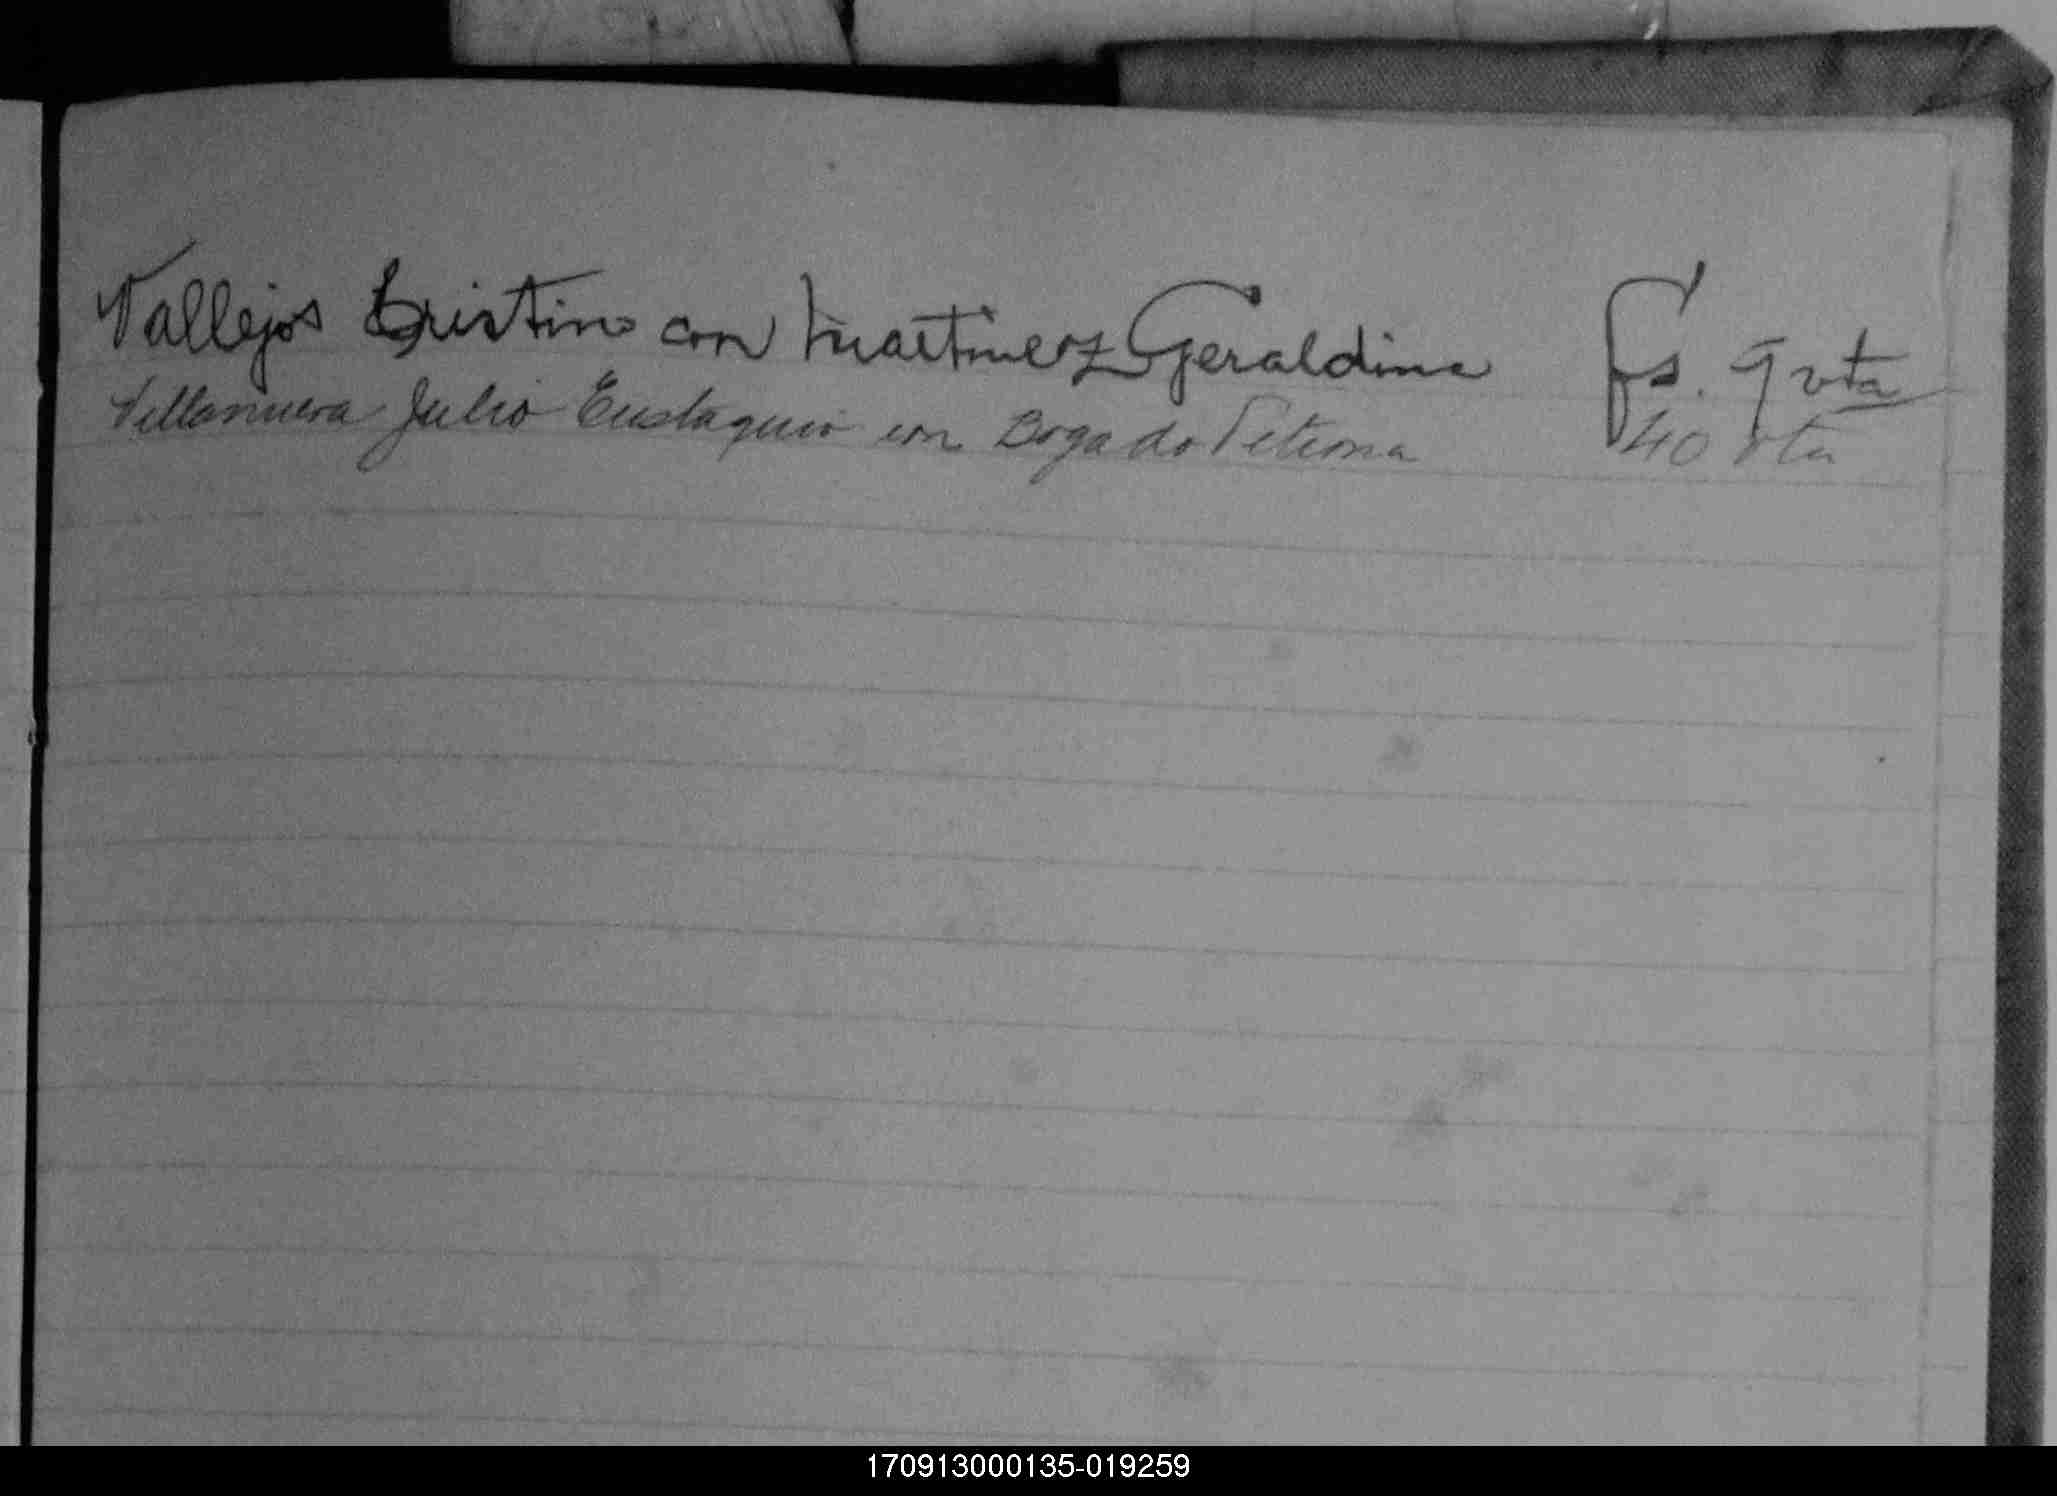 Vallejos Cristino con Martinez Geraldina fs. 9 vta
Villanueva Julio Eustaquio con Bogado Petrona 40 vta
170913000135-019259